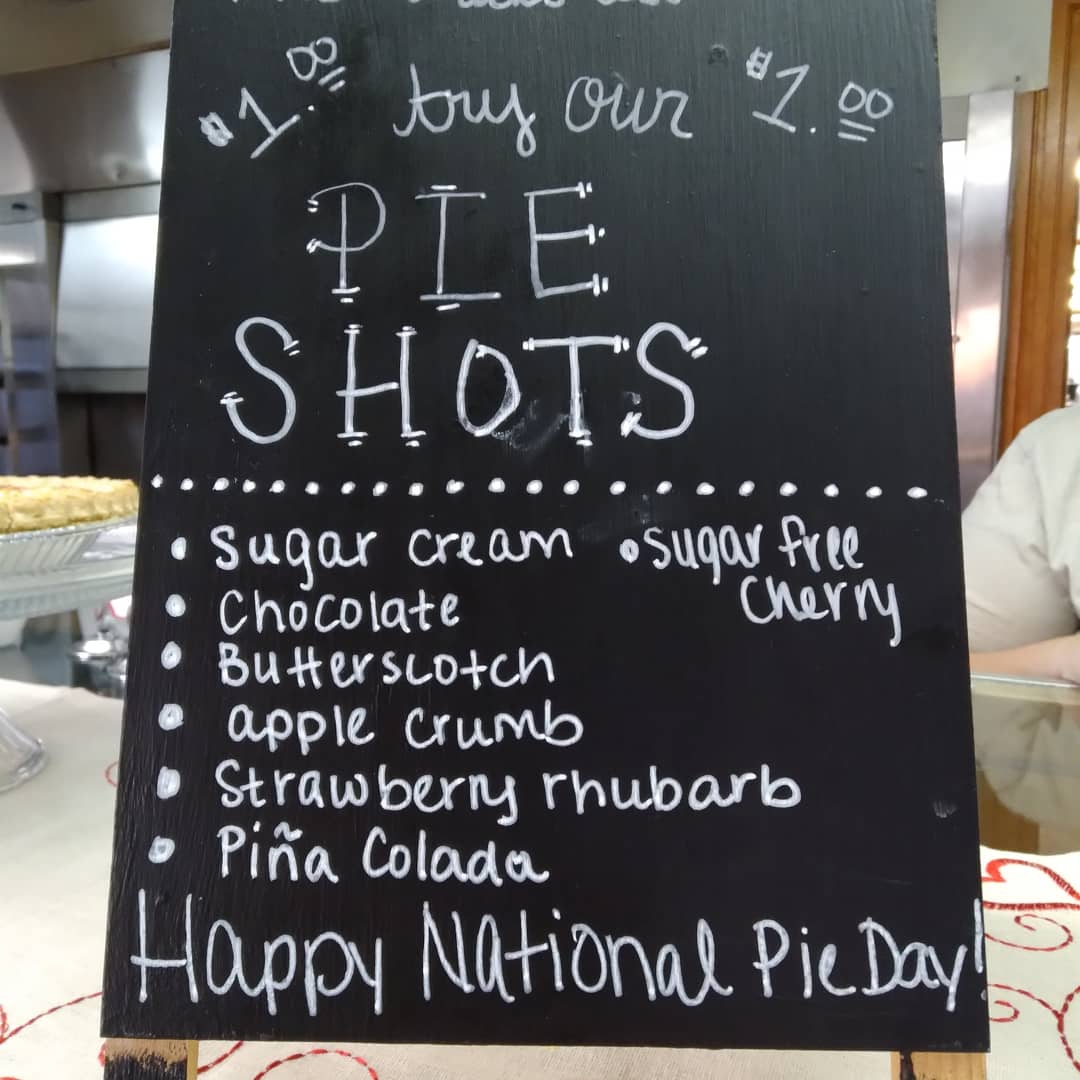 $1.00 try our $1.00
PIE
SHOTS
• Sugar cream • Sugar free
Cherry
• Chocolate
• Butterscotch
• apple crumb
• Strawberry rhubarb
• Piña Colada
Happy National Pie Day!